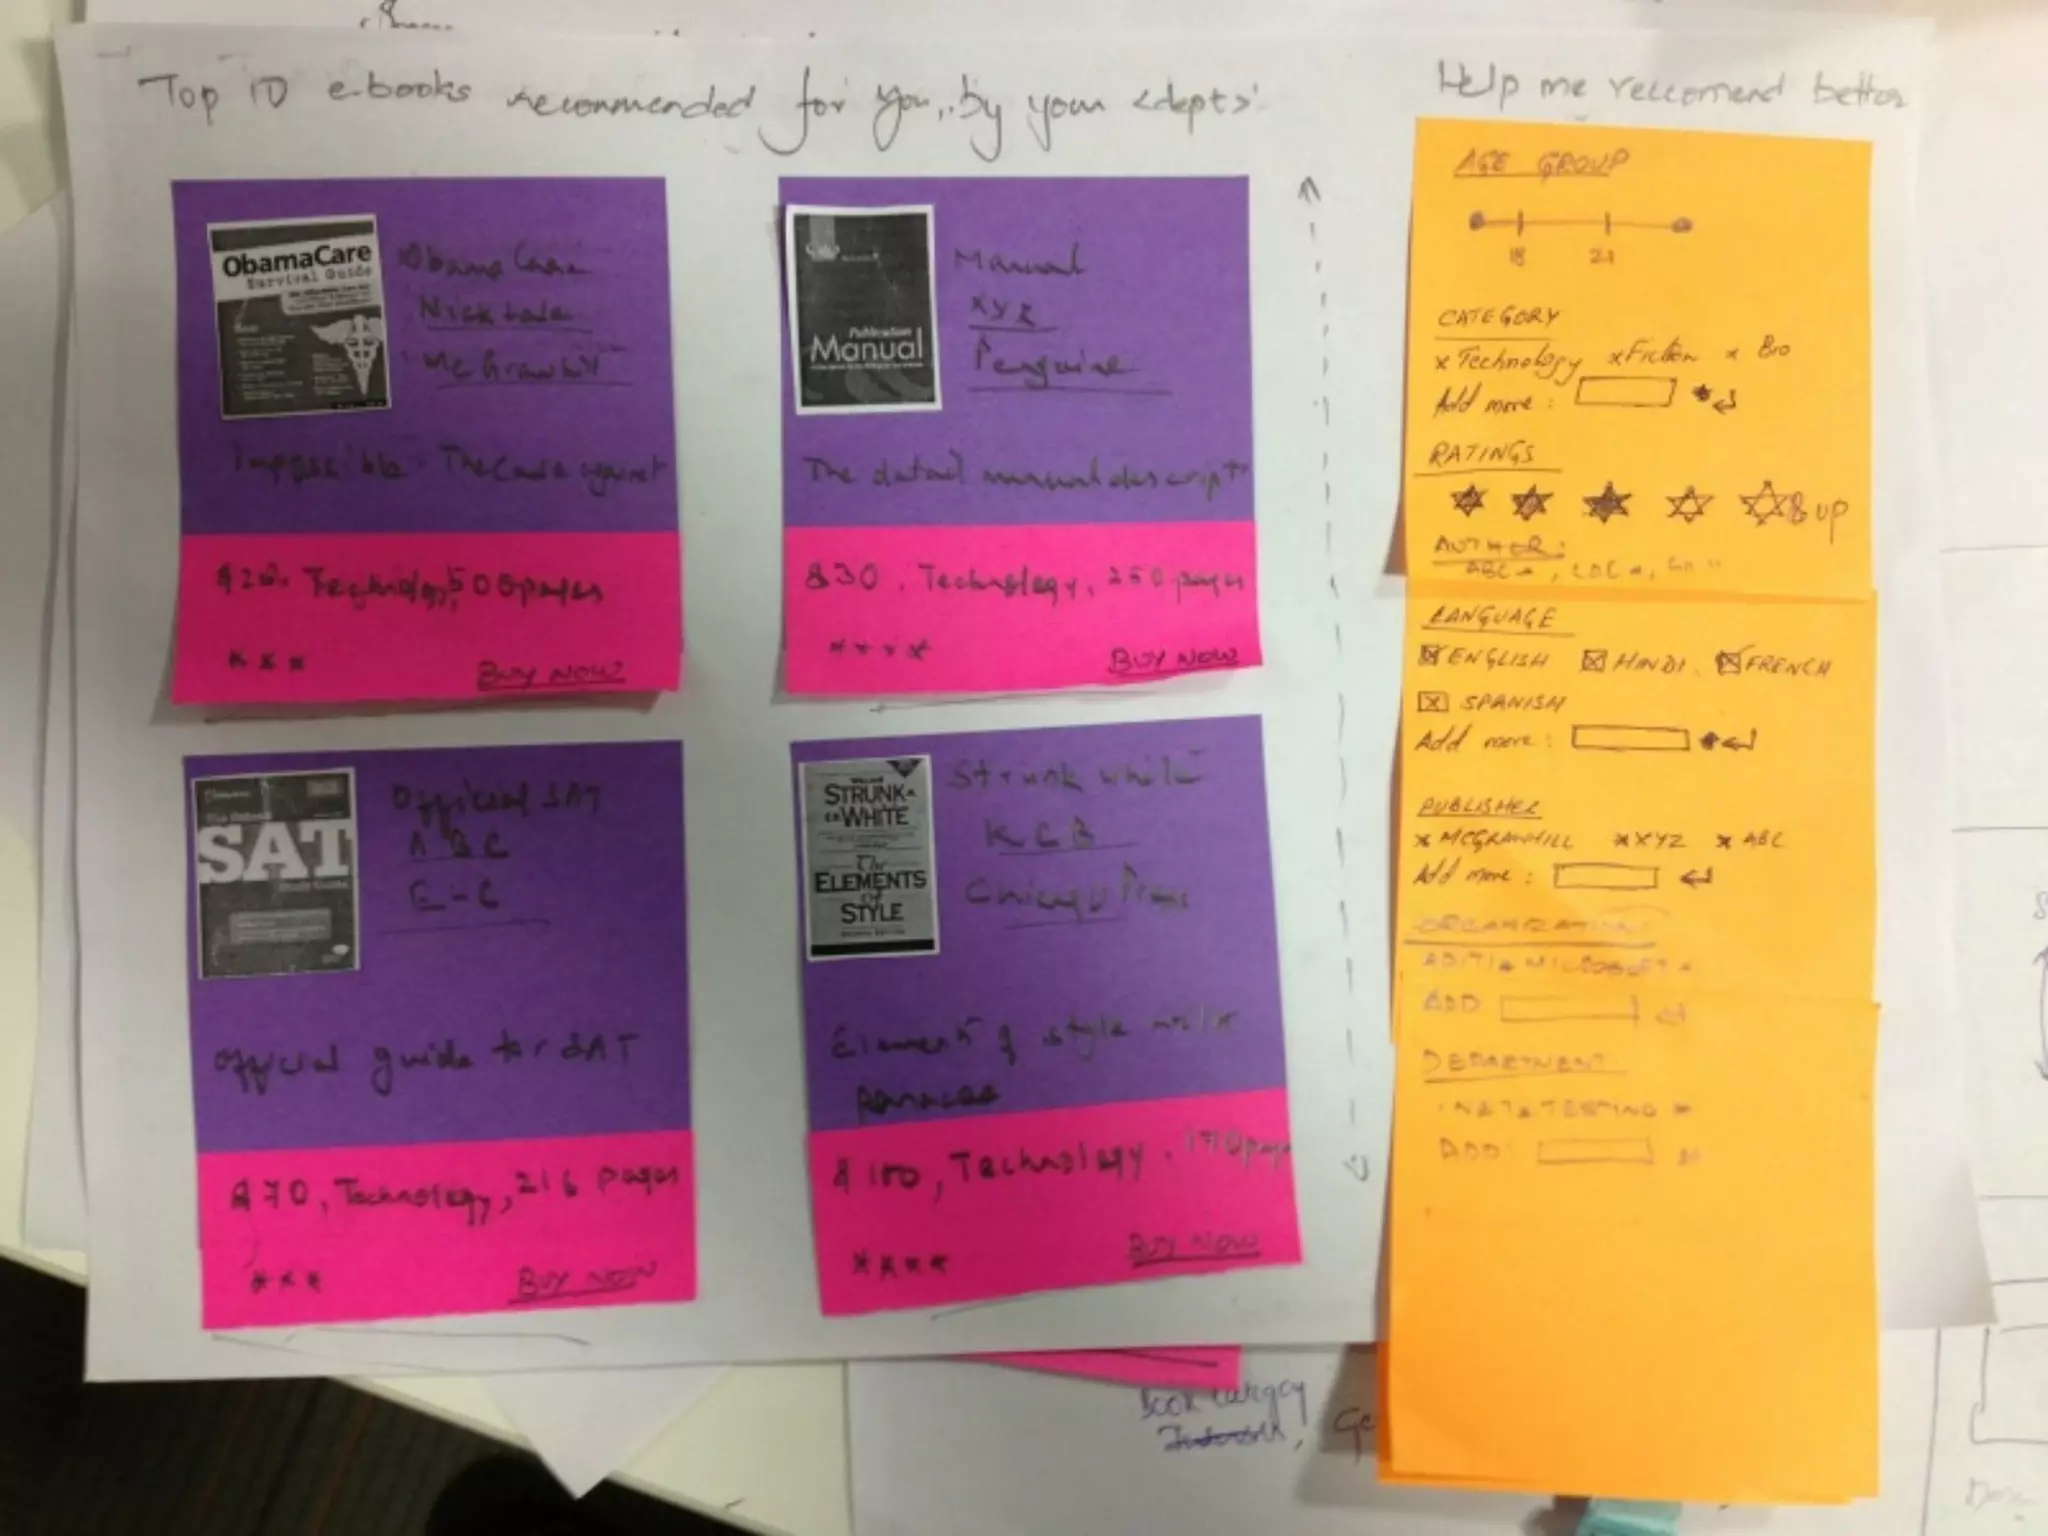 Top 10 e-books recommended for you, by your <dept>'
ObamaCare
Survival Guide
Obama Care
Nick
McGrawhill
Impossible. The Case against
$20. Technology, 500 pages
* * *
BUY NOW
Publication
Manual
Manual
XYZ
Penguine
The detail manual descript
$30, Technology, 250 pages
* * * *
BUY NOW
SAT
Official SAT
ABC
E-C
Official guide for SAT
$70, Technology, 216 pages
* * *
BUY NOW
STRUNK
WHITE
The
ELEMENTS
of
STYLE
Strunk white
KCB
Chicago Press
Elements of style
$100, Technology, 170 page
* * * *
BUY NOW
Help me reccomend better
AGE GROUP
18 21
CATEGORY
x Technology x Fiction x Bio
Add more:
RATINGS
& up
AUTHOR:
ABC
LANGUAGE
ENGLISH HINDI. FRENCH
SPANISH
Add more:
PUBLISHER
x MCGRAWHILL x XYZ x ABC
Add more:
ORGANIZATION
ADITI MICROSOFT
ADD
DEPARTMENT
TESTING
ADD:
Book Category